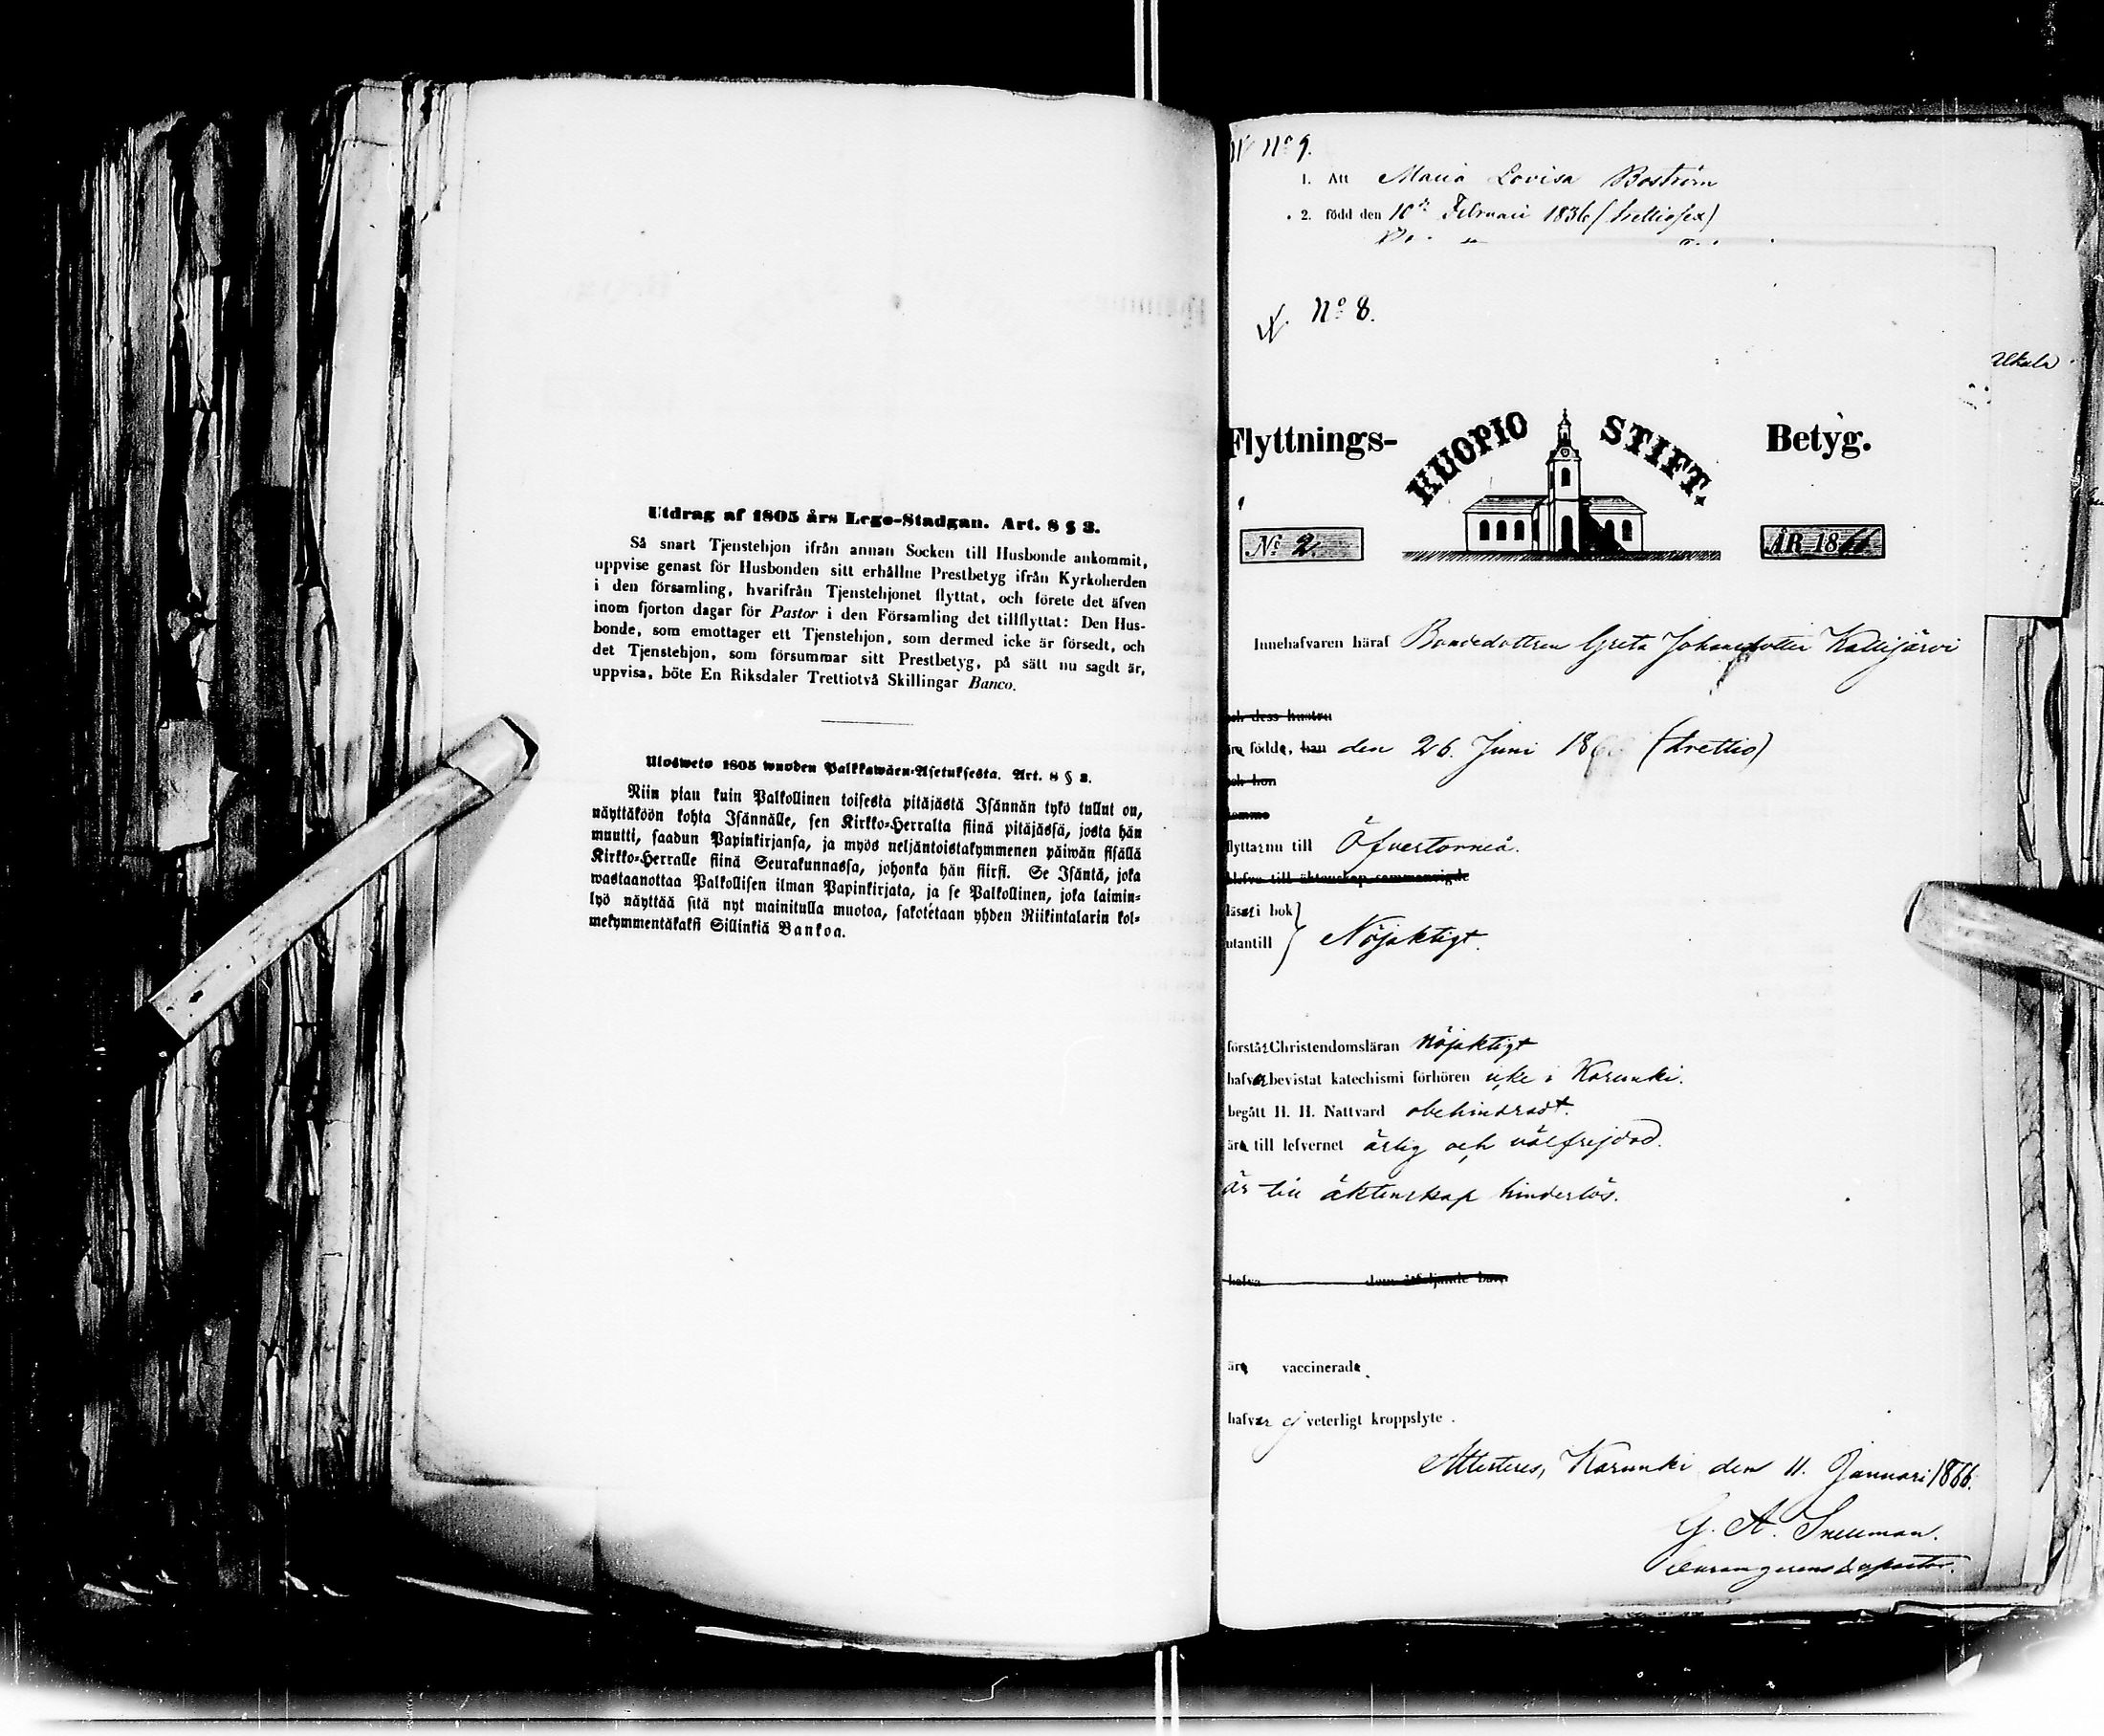 Utdrag af 1805 års Lego-Stadgan. Art. 8 § 3.
Så snart Tjenstehjon ifrån annan Socken till Husbonde ankommit,
uppvise genast för Husbonden sitt erhållne Prestbetyg ifrån Kyrkoherden
i den församling, hvarifrån Tjenstehjonet flyttat, och förete det äfven
inom fjorton dagar för Pastor i den Församling det tillflyttat: Den Hus-
bonde, som emottager ett Tjenstehjon, som dermed icke är försedt, och
det Tjenstehjon, som försummar sitt Prestbetyg, på sätt nu sagdt är,
uppvisa, böte En Riksdaler Trettiotvå Skillingar Banco.
Ulosweto 1805 wuoden Palkkawäen-Asetuksesta. Art. 8 § 3.
Niin pian kuin Palkollinen toisesta pitäjästä Isännän tykö tullut on,
näyttäköön kohta Isännälle, sen Kirkko-Herralta siinä pitäjässä, josta hän
muutti, saadun Papinkirjansa, ja myös neljäntoistakymmenen päiwän sisällä
Kirkko-Herralle siinä Seurakunnassa, johonka hän siirsi. Se Isäntä, joka
wastaanottaa Palkollisen ilman Papinkirjata, ja se Palkollinen, joka laimin-
lyö näyttää sitä nyt mainitulla muotoa, sakotetaan yhden Riikintalarin kol-
mekymmentäkaksi Sillinkiä Bankoa.
No 9.
1. Att Maria Lovisa Boström
2. född den 10de Februari 1836 (trettiosex)
No 8.
Flyttnings- KUOPIO STIFT. Betyg.
No 2. ÅR 1866
Innehafvaren häraf Bondedottren Greta Johansdotter Kallijärvi
och dess hustru
äro födde, han den 26. Juni 18 (trettio)
och hon
flyttar nu till Öfvertorneå.
läser i bok
utantill } Nöjaktigt.
förstår Christendomsläran nöjaktigt
hafver bevistat katechismi förhören icke i Karunki.
begått H. H. Nattvard obehindradt.
äro till lefvernet ärlig och välfrejdad.
är till äktenskap hinderlös.
hafva dem åtföljande barn
äro vaccinerade.
hafver ej veterligt kroppslyte.
Attesteres, Karunki den 11. Januari 1866.
G. A. Snellman.